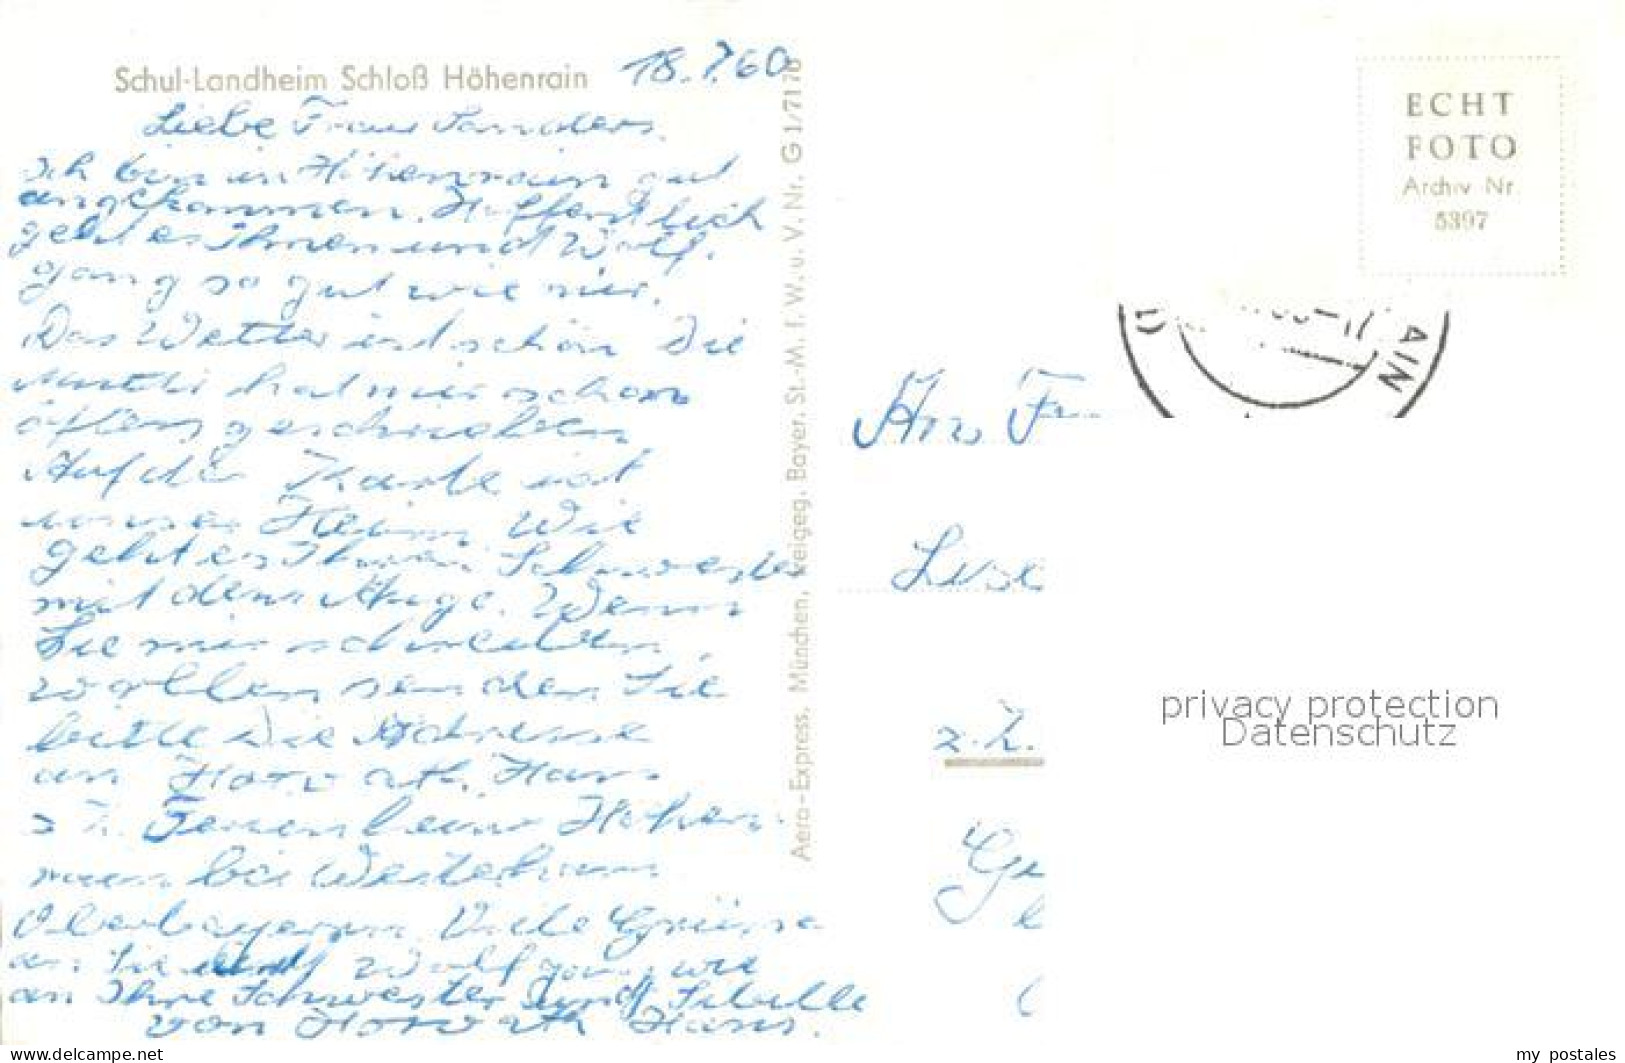 Schul-Landheim Schloß Höhenrain
18.7.60
Liebe Frau Sanders.
Ich bin in Höhenrain gut
angekommen. Hoffentlich
geht es Ihnen und Wolf.
gang so gut wie mir.
Das Wetter ist schön Die
Mutti hat mir schon
öfters geschrieben
Auf der Karte ist
unser Heim. Wie
geht es Ihrer Schwester
mit dem Auge. Wenn
Sie mir schreiben
wollen senden Sie
bitte die Adresse
an Horvath. Hans
z Z. Ferienheim Höhen
rain bei Westerham
Oberbayern Viele Grüsse
an Sie und Wolfgang wie
an Ihre Schwester und Sibille
von Horvath Hans.
Aero-Express, München, freigeg. Bayer. St.-M. f. W. u. V. Nr. G 1/7170
ECHT
FOTO
Archiv Nr.
5397
AIN
An F
z.Z.
privacy protection
Datenschutz
www.delcampe.net
my_postales